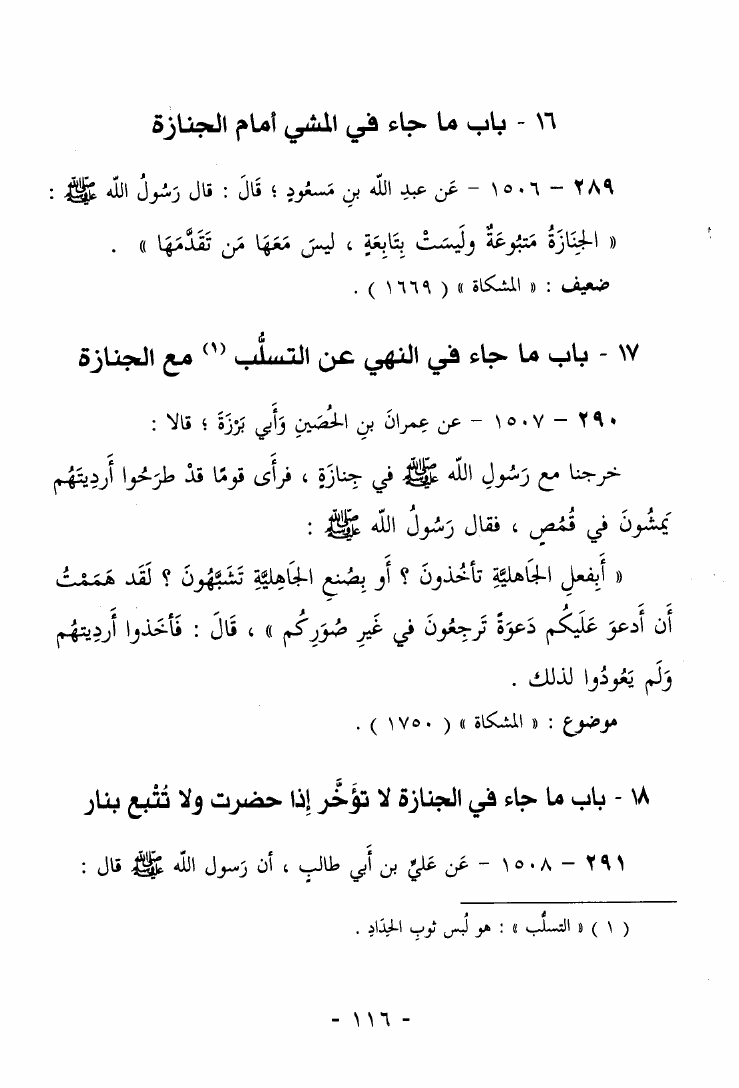 ١٦ - باب ما جاء في المشي أمام الجنازة
٢٨٩ – ١٥٠٦ – عَن عبدِ اللّه بنِ مَسعُودٍ ؛ قَالَ : قال رَسُولُ اللّه ﷺ :
« الجَنِازَةُ مَتبُوعَةٌ ولَيسَتْ بِتَابِعَةٍ ، ليسَ مَعَهَا مَن تَقَدَّمَهَا » .
ضعيف : « المشكاة » ( ١٦٦٩ ) .
١٧ - باب ما جاء في النهي عن التسلُّب (١) مع الجنازة
٢٩٠ – ١٥٠٧ – عن عِمرانَ بنِ الحُصَينِ وَأَبي بَرْزَةَ ؛ قالا :
خرجنا مع رَسُولِ اللّه ﷺ في جِنازَةٍ ، فرأَى قومًا قدْ طرَحُوا أَردِيتَهُم
يَمشُونَ في قُمُصٍ ، فقال رَسُولُ اللّه ﷺ :
« أَبِفعلِ الجَاهليَّةِ تأخُذونَ ؟ أَو بِصُنعِ الجَاهِليَّةِ تَشَبَّهُونَ ؟ لَقَد هَمَمْتُ
أَن أَدعوَ عَلَيكُم دَعوَةً تَرجِعُونَ في غَيرِ صُوَرِكُم » ، قَالَ : فَأخَذوا أَرديتهُم
وَلَم يَعُودُوا لذلك .
موضوع : « المشكاة » ( ١٧٥٠ ) .
١٨ - باب ما جاء في الجنازة لا تؤَخَّر إِذا حضرت ولا تُتْبع بنار
٢٩١ – ١٥٠٨ – عَن عَليِّ بن أَبي طالبٍ ، أَن رَسول اللّه ﷺ قال :
( ١ ) « التسلُّب » : هو لُبس ثوبِ الحِدَادِ .
- ١١٦ -